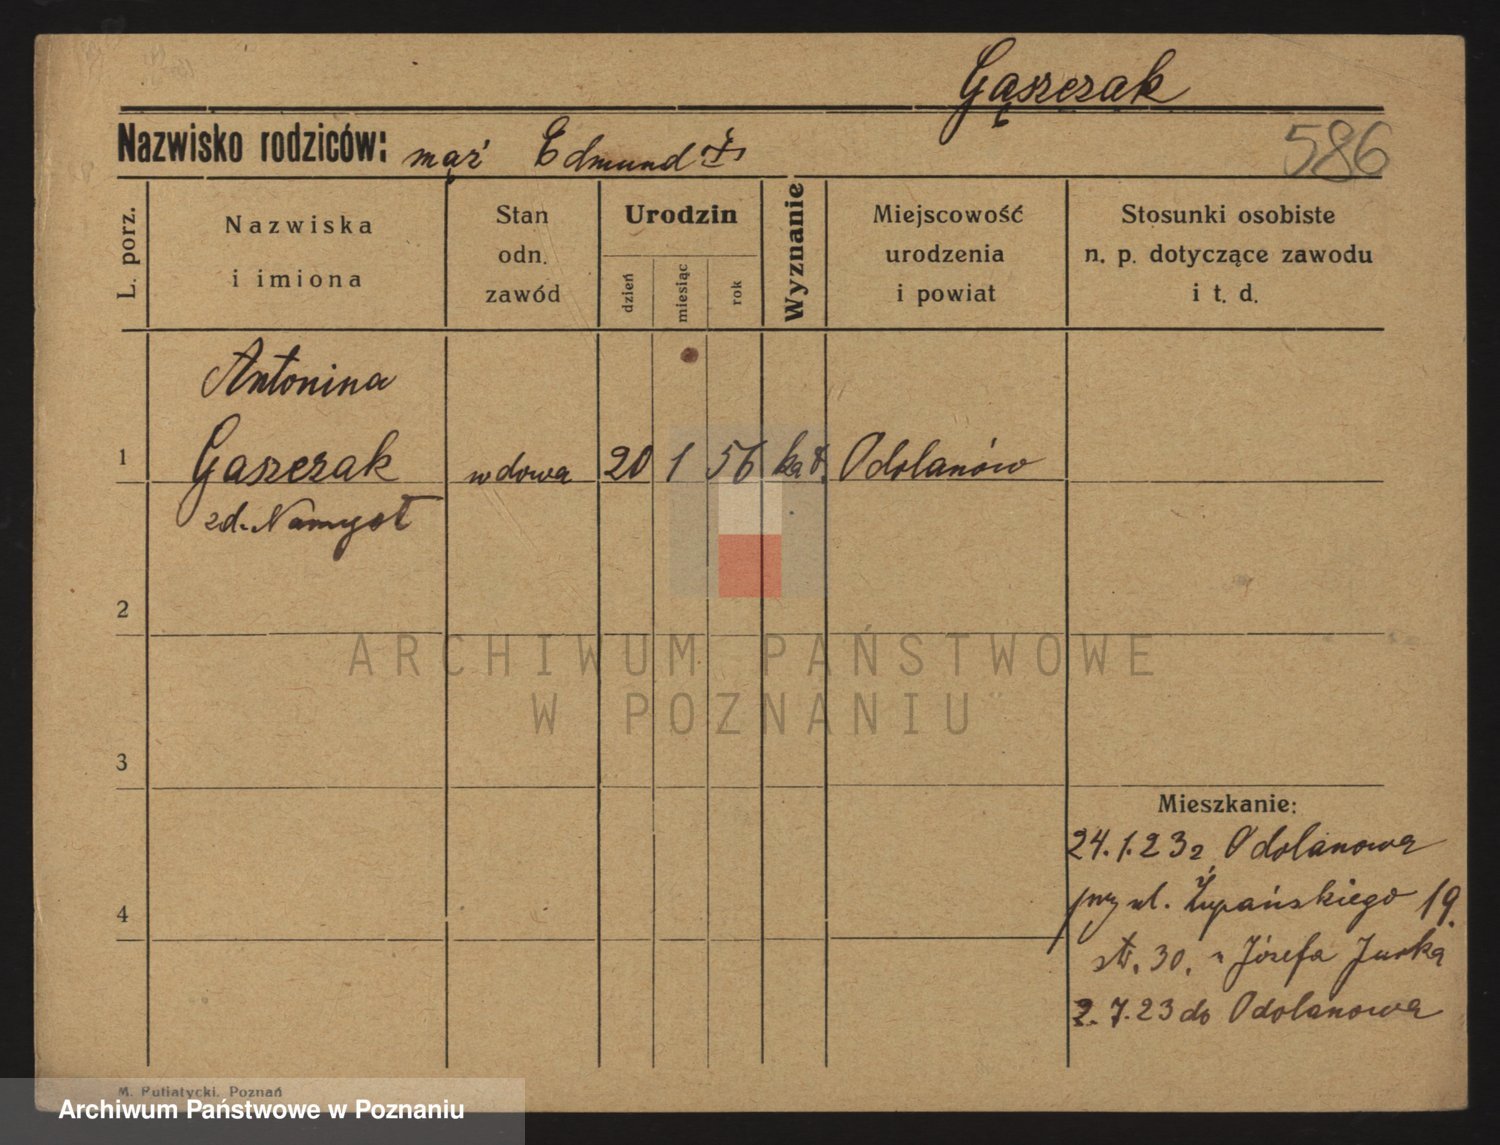 Gąszczak
Nazwisko rodziców: mąż Edmund
586
L. porz.
Nazwiska
i imiona
Stan
odn.
zawód
Urodzin
dzień
miesiąc
rok
Wyznanie
Miejscowość
urodzenia
i powiat
Stosunki osobiste
n. p. dotyczące zawodu
i t. d.
Antonina
1 Gąszczak wdowa 20 1 56 kat. Odolanów
zd. Namysł
2
3
4
Mieszkanie:
24.1.23 z Odolanowa
przy ul. Żupańskiego 19.
Józefa
2.7.23 do Odolanowa
ARCHIWUM PAŃSTWOWE
W POZNANIU
M. Putiatycki, Poznań
Archiwum Państwowe w Poznaniu